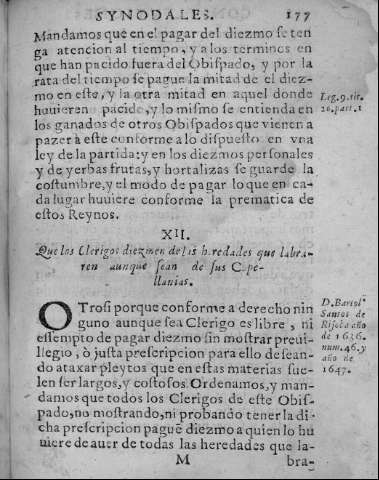 SYNODALES. 177
Mandamos que en el pagar del diezmo se ten
ga atencion al tiempo, y a los terminos en
que han pacido fuera del Obispado, y por la
rata del tiempo se pague la mitad de el diez-
mo en este, y la otra mitad en aquel donde
huuieren pacido, y lo mismo se entienda en
los ganados de otros Obispados que vienen a
pazer à este conforme a lo dispuesto en vna
ley de la partida: y en los diezmos personales
y de yerbas frutas, y hortalizas se guarde la
costumbre, y el modo de pagar lo que en ca-
da lugar huuiere conforme la prematica de
estos Reynos.
Leg. 9. tit.
20. part. 1
XII.
Que los Clerigos diezmen de las heredades que labra-
ren aunque sean de sus Cape-
llanias.
OTrosi porque conforme a derecho nin
guno aunque sea Clerigo es libre, ni
essempto de pagar diezmo sin mostrar preui-
llegio, ò justa prescripcion para ello desean-
do ataxar pleytos que en estas materias sue-
len ser largos, y costosos. Ordenamos, y man-
damos que todos los Clerigos de este Obis-
pado, no mostrando, ni probando tener la di-
cha prescripcion paguē diezmo a quien lo hu
uiere de auer de todas las heredades que la-
D. Bartol
Santos de
Risoba año
de 1636.
num. 46. y
año de
1647.
M bra-